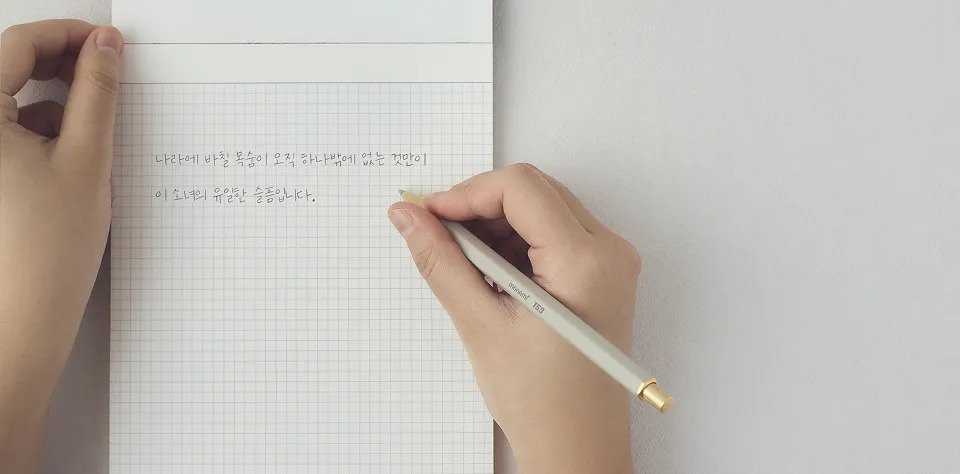 나라에 바칠 목숨이 오직 하나밖에 없는 것만이
이 소녀의 유일한 슬픔입니다.
monami 153